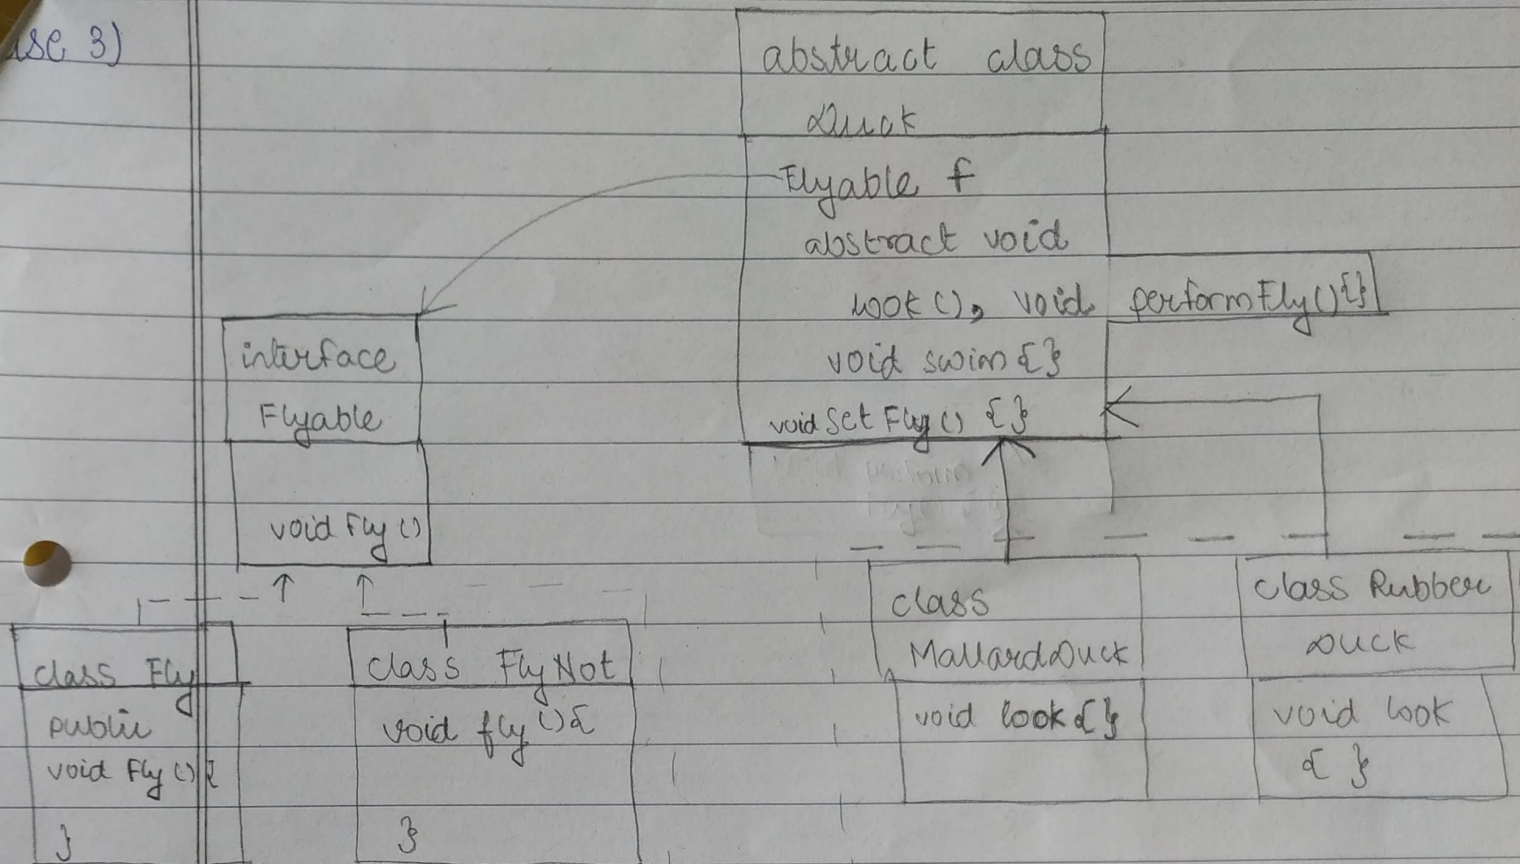 use 3)
abstract class
Duck
Flyable f
abstract void
look(), void performFly(){}
void swim{}
void set Fly() {}
interface
Flyable
void Fly()
class Fly
public
void Fly(){
}
class FlyNot
void fly(){
}
class
MallardDuck
void look{}
class Rubber
Duck
void look
{ }